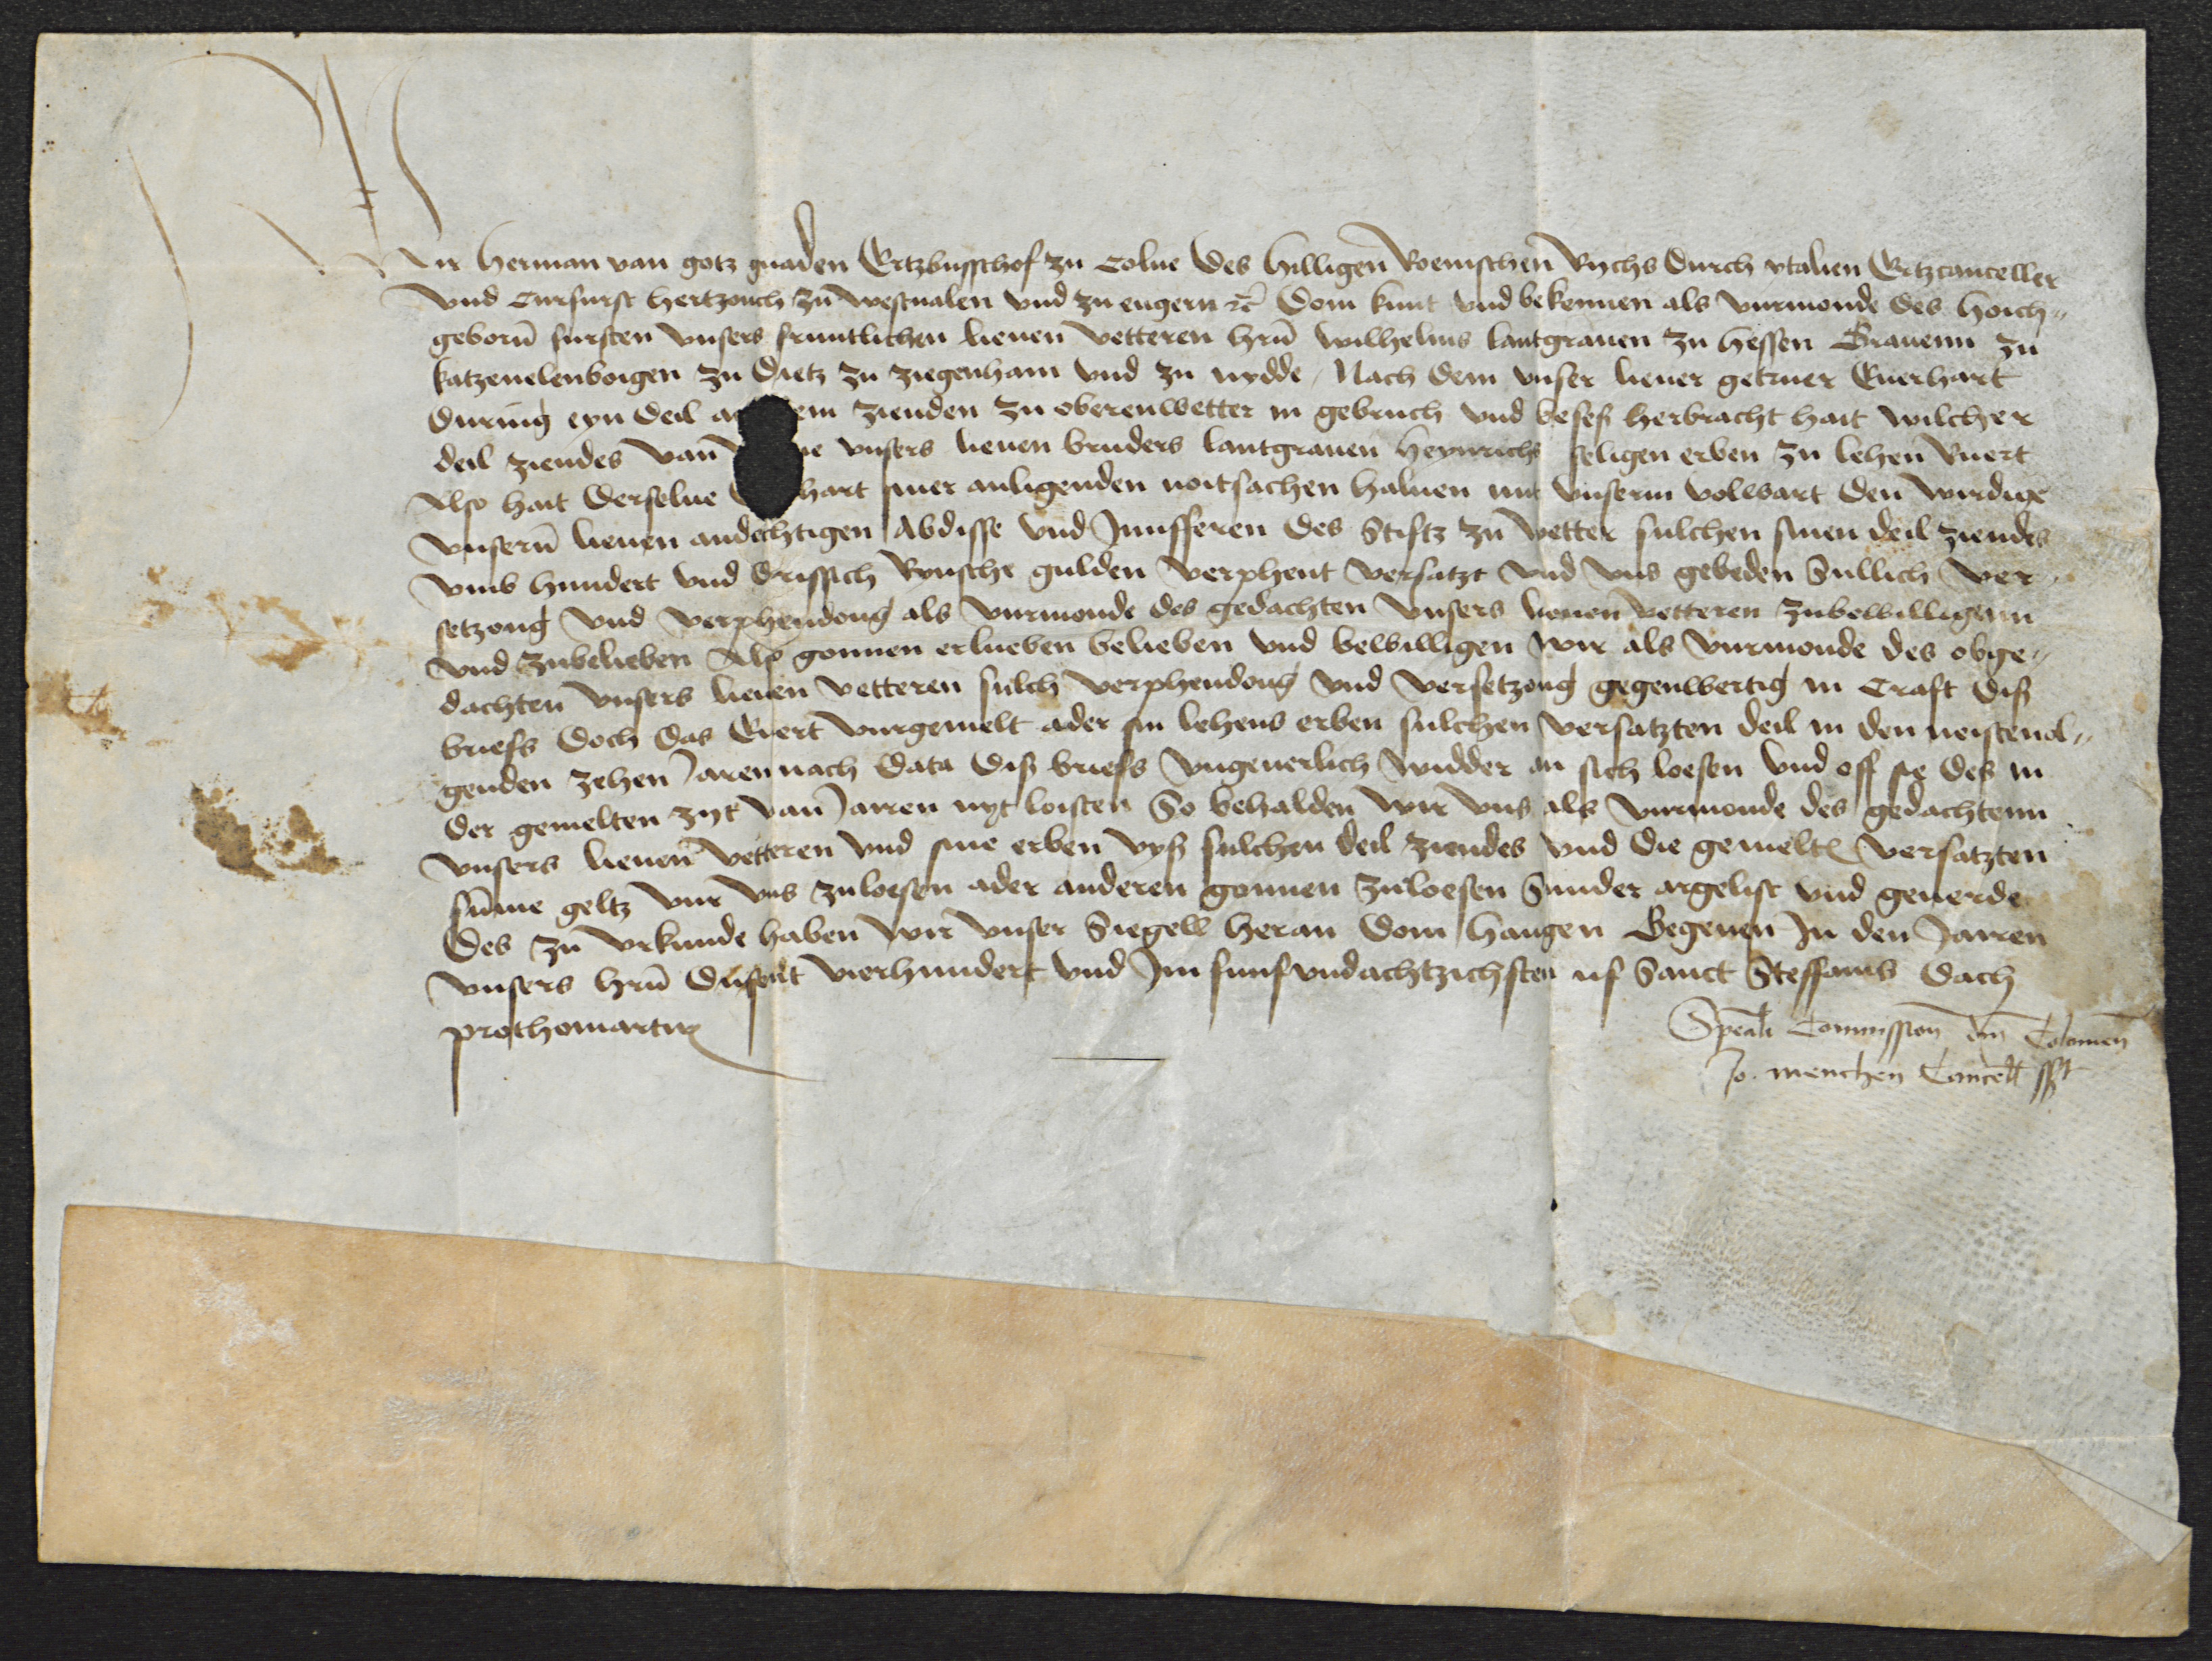 Wir Herman van gotz gnaden Ertzbusschof zu Colne des hilligen Roemschen Rychs durch ytalien Ertzcanceller
vnd Curfurst hertzouch zu westualen vnd zu engern ꝛc̄ Dom kunt vnd bekennen als vurmonde des hoich„
geborn̄ fursten vnsers fruntlichen lieuen vetteren hrn̄ wilhelms lantgrauen zu hessen Grauenn zu
katzenelenboigen zu Dietz zu ziegenham vnd zu nydde / Nach dem vnser lieuer getruer Euerhart
During eyn deil a em zienden zu oberenwetter in gebruch vnd beseß herbracht hait wilcher
deil ziendes van ne vnsers lieuen bruders lantgrauen heynrichs seligen erben zu lehen Ruert
Also hait derselue hart siner anligenden noitsachen haluen mit vnserm volwart den wirdige
vnsern̄ lieuen andechtigen Abdisse vnd Junfferen des Stiftz zu wetter sulchen sinen deil ziendes
vmb hundert vnd drissich Rynsche gulden verphent versatzt vnd vns gebeden Sullich ver
setzong vnd verphendong als vurmonde des gedachten vnsers lieuen vetteren zubewilligenn
vnd zubelieben Also gonnen erlueben belieben vnd bewilligen wir als vurmonde des obge„
dachten vnsers lieuen vetteren sulch verphendong vnd versetzong gegenwertig in Craft diß
briefs doch das Euert vurgemelt ader sin lehens erben sulchen versatzten deil in den neistenol„
genden zehen Jaren nach data diß briefs vngeuerlich widder an sich loesen vnd off sie des in
der gemelten zyt van Jairen nyt loisten So behalden wir vns als vurmonde des gedachtenn
vnsers lieuen vetteren vnd sine erben vyß sulchen deil ziendes vnd die gemelte versatzten
sum̄e geltz vur vns zuloesen ader anderen gonnen zuloesen Sunder argelist vnd geuerde
Des zu vrkunde haben wir vnser Siegell heran dom hangen Gegeuen In den Jairen
vnsers hrn̄ Dusent vierhundert vnd Im funfvndachtzichsten uf Sanct Steffains dach
prothomartir
Speāli Commission dn̄i Colonien̄
Jo. menchen Cancell sst